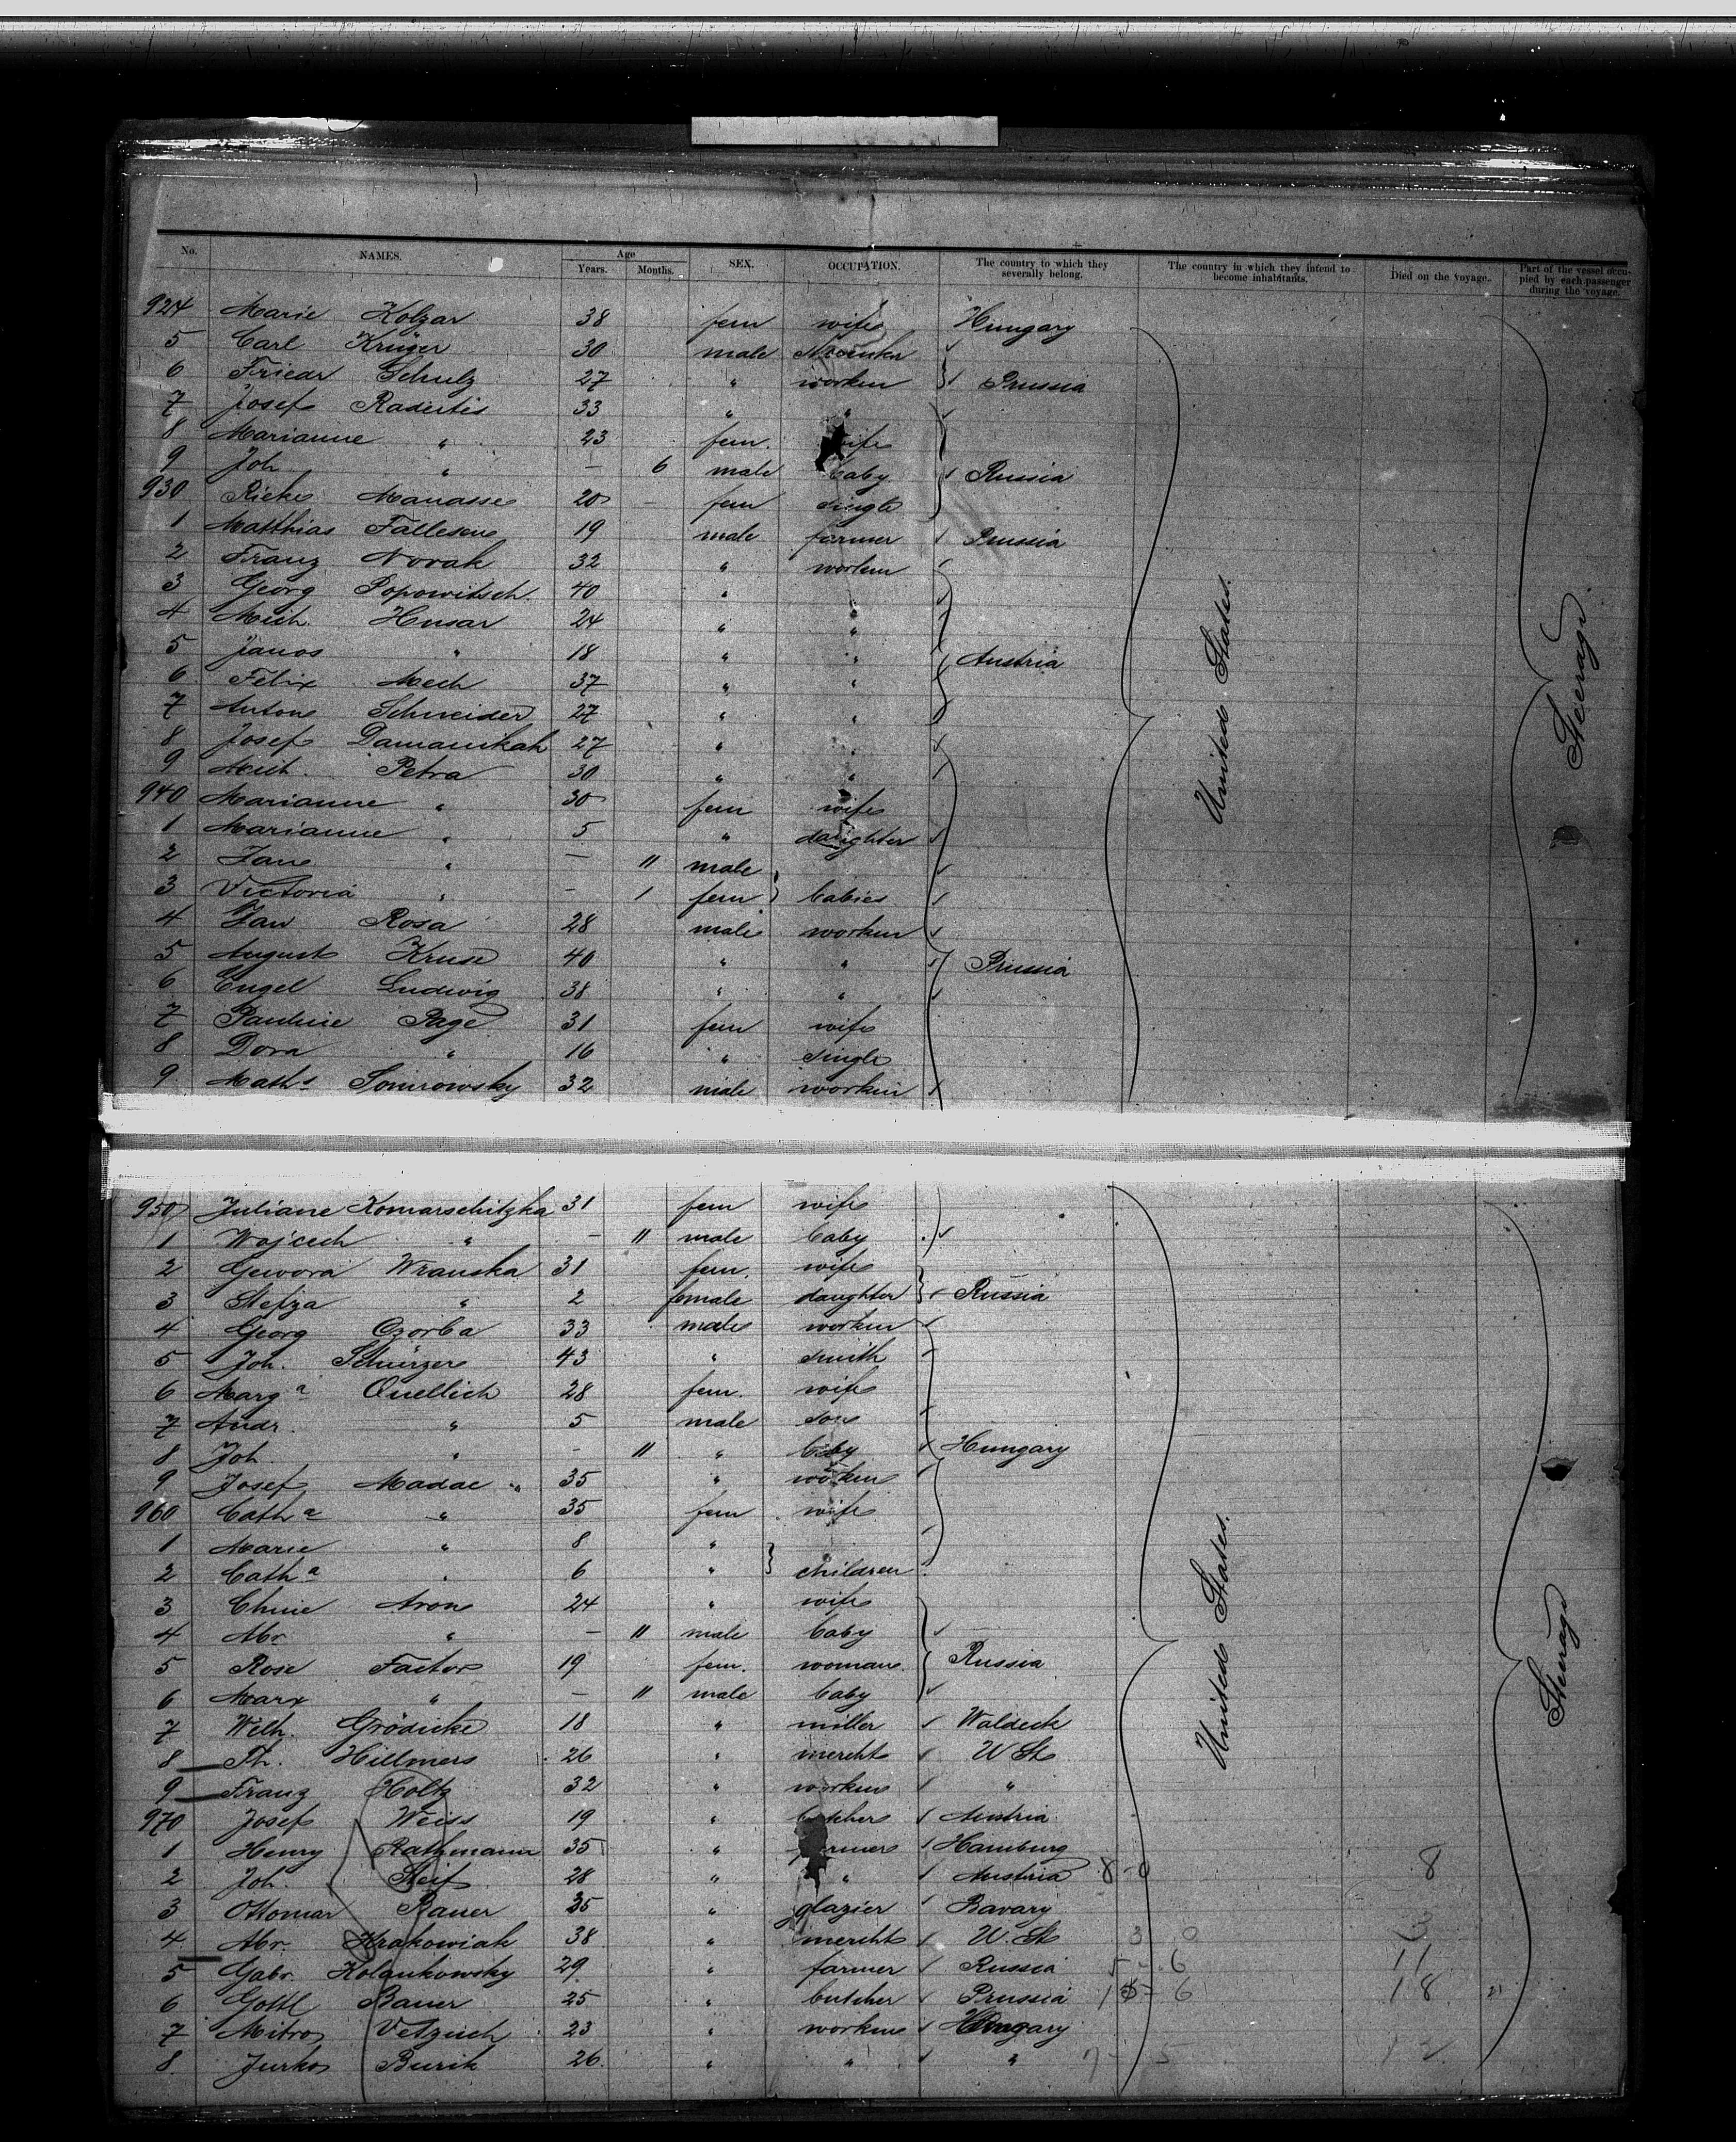 No. NAMES. Age Years. Months. SEX. OCCUPATION. The country to which they severally belong. The country in which they intend to become inhabitants. Died on the voyage. Part of the vessel occupied by each passenger during the voyage.
924 Marie Kolzar 38 fem wife Hungary
5 Carl Krüger 30 male
6 Friedr Schulz 27 " worken Prussia
7 Josef Radertis 33 " "
8 Marianne " 23 fem. wife
9 Joh " — 6 male baby Russia
930 Rieke Manasse 20 — fem single
1 Matthias Fallesen 19 male farmer Prussia
2 Franz Novak 32 " worken
3 Georg Popowitsch 40 " "
4 Mich. Husar 24 " "
5 Janos " 18 " " Austria
6 Felix Mech 37 " "
7 Anton Schneider 27 " "
8 Josef Damanikah 27 " "
9 Mich. Petra 30 " "
940 Marianne " 30 fem wife
1 Marianne " 5 " daughter
2 Jane " — 11 male
3 Victoria " — 1 fem babies
4 Jan Rosa 28 male worken
5 August Kruse 40 " " Prussia
6 Engel Ludwig 38 " "
7 Pauline Page 31 fem wife
8 Dora " 16 " single
9 Maths Somrowsky 32 male worken
United States.
Steerage
950 Juliane Komarschitzka 31 fem wife
1 Wojcech " — 11 male baby
2 Gewora Wranska 31 fem. wife
3 Stefza " 2 female daughter Russia
4 Georg Czorba 33 male worken
5 Joh. Schürzer 43 " smith
6 Marga Quellich 28 fem. wife
7 Andr. " 5 male son
8 Joh. " — 11 " baby Hungary
9 Josef Madac 35 " worken
960 Catha " 35 fem wife
1 Marie " 8 "
2 Catha " 6 " children
3 Chnie Aron 24 " wife
4 Abr " — 11 male baby
5 Rose Factor 19 fem. woman Russia
6 Marx " — 11 male baby
7 Wilh. Grödicke 18 " miller Waldeck
8 Th. Hillmers 26 " mercht W St
9 Franz Holtz 32 " worken "
970 Josef Weiss 19 " butcher Austria
1 Henry Rathmann 35 " farmer Hamburg
2 Joh. Steif 28 " " Austria 8-0 8
3 Ottomar Bauer 35 " glazier Bavary
4 Abr. Krakowiak 38 " mercht W. St 3 0 3
5 Gabr. Kolankowsky 29 " farmer Russia 5 - 6 11
6 Gottl Bauer 25 " butcher Prussia 15 - 6 18
7 Mitro Vetzich 23 " worken Hungary
8 Jurko Burik 26 " " " 7 - 5 12
United States.
Steerage